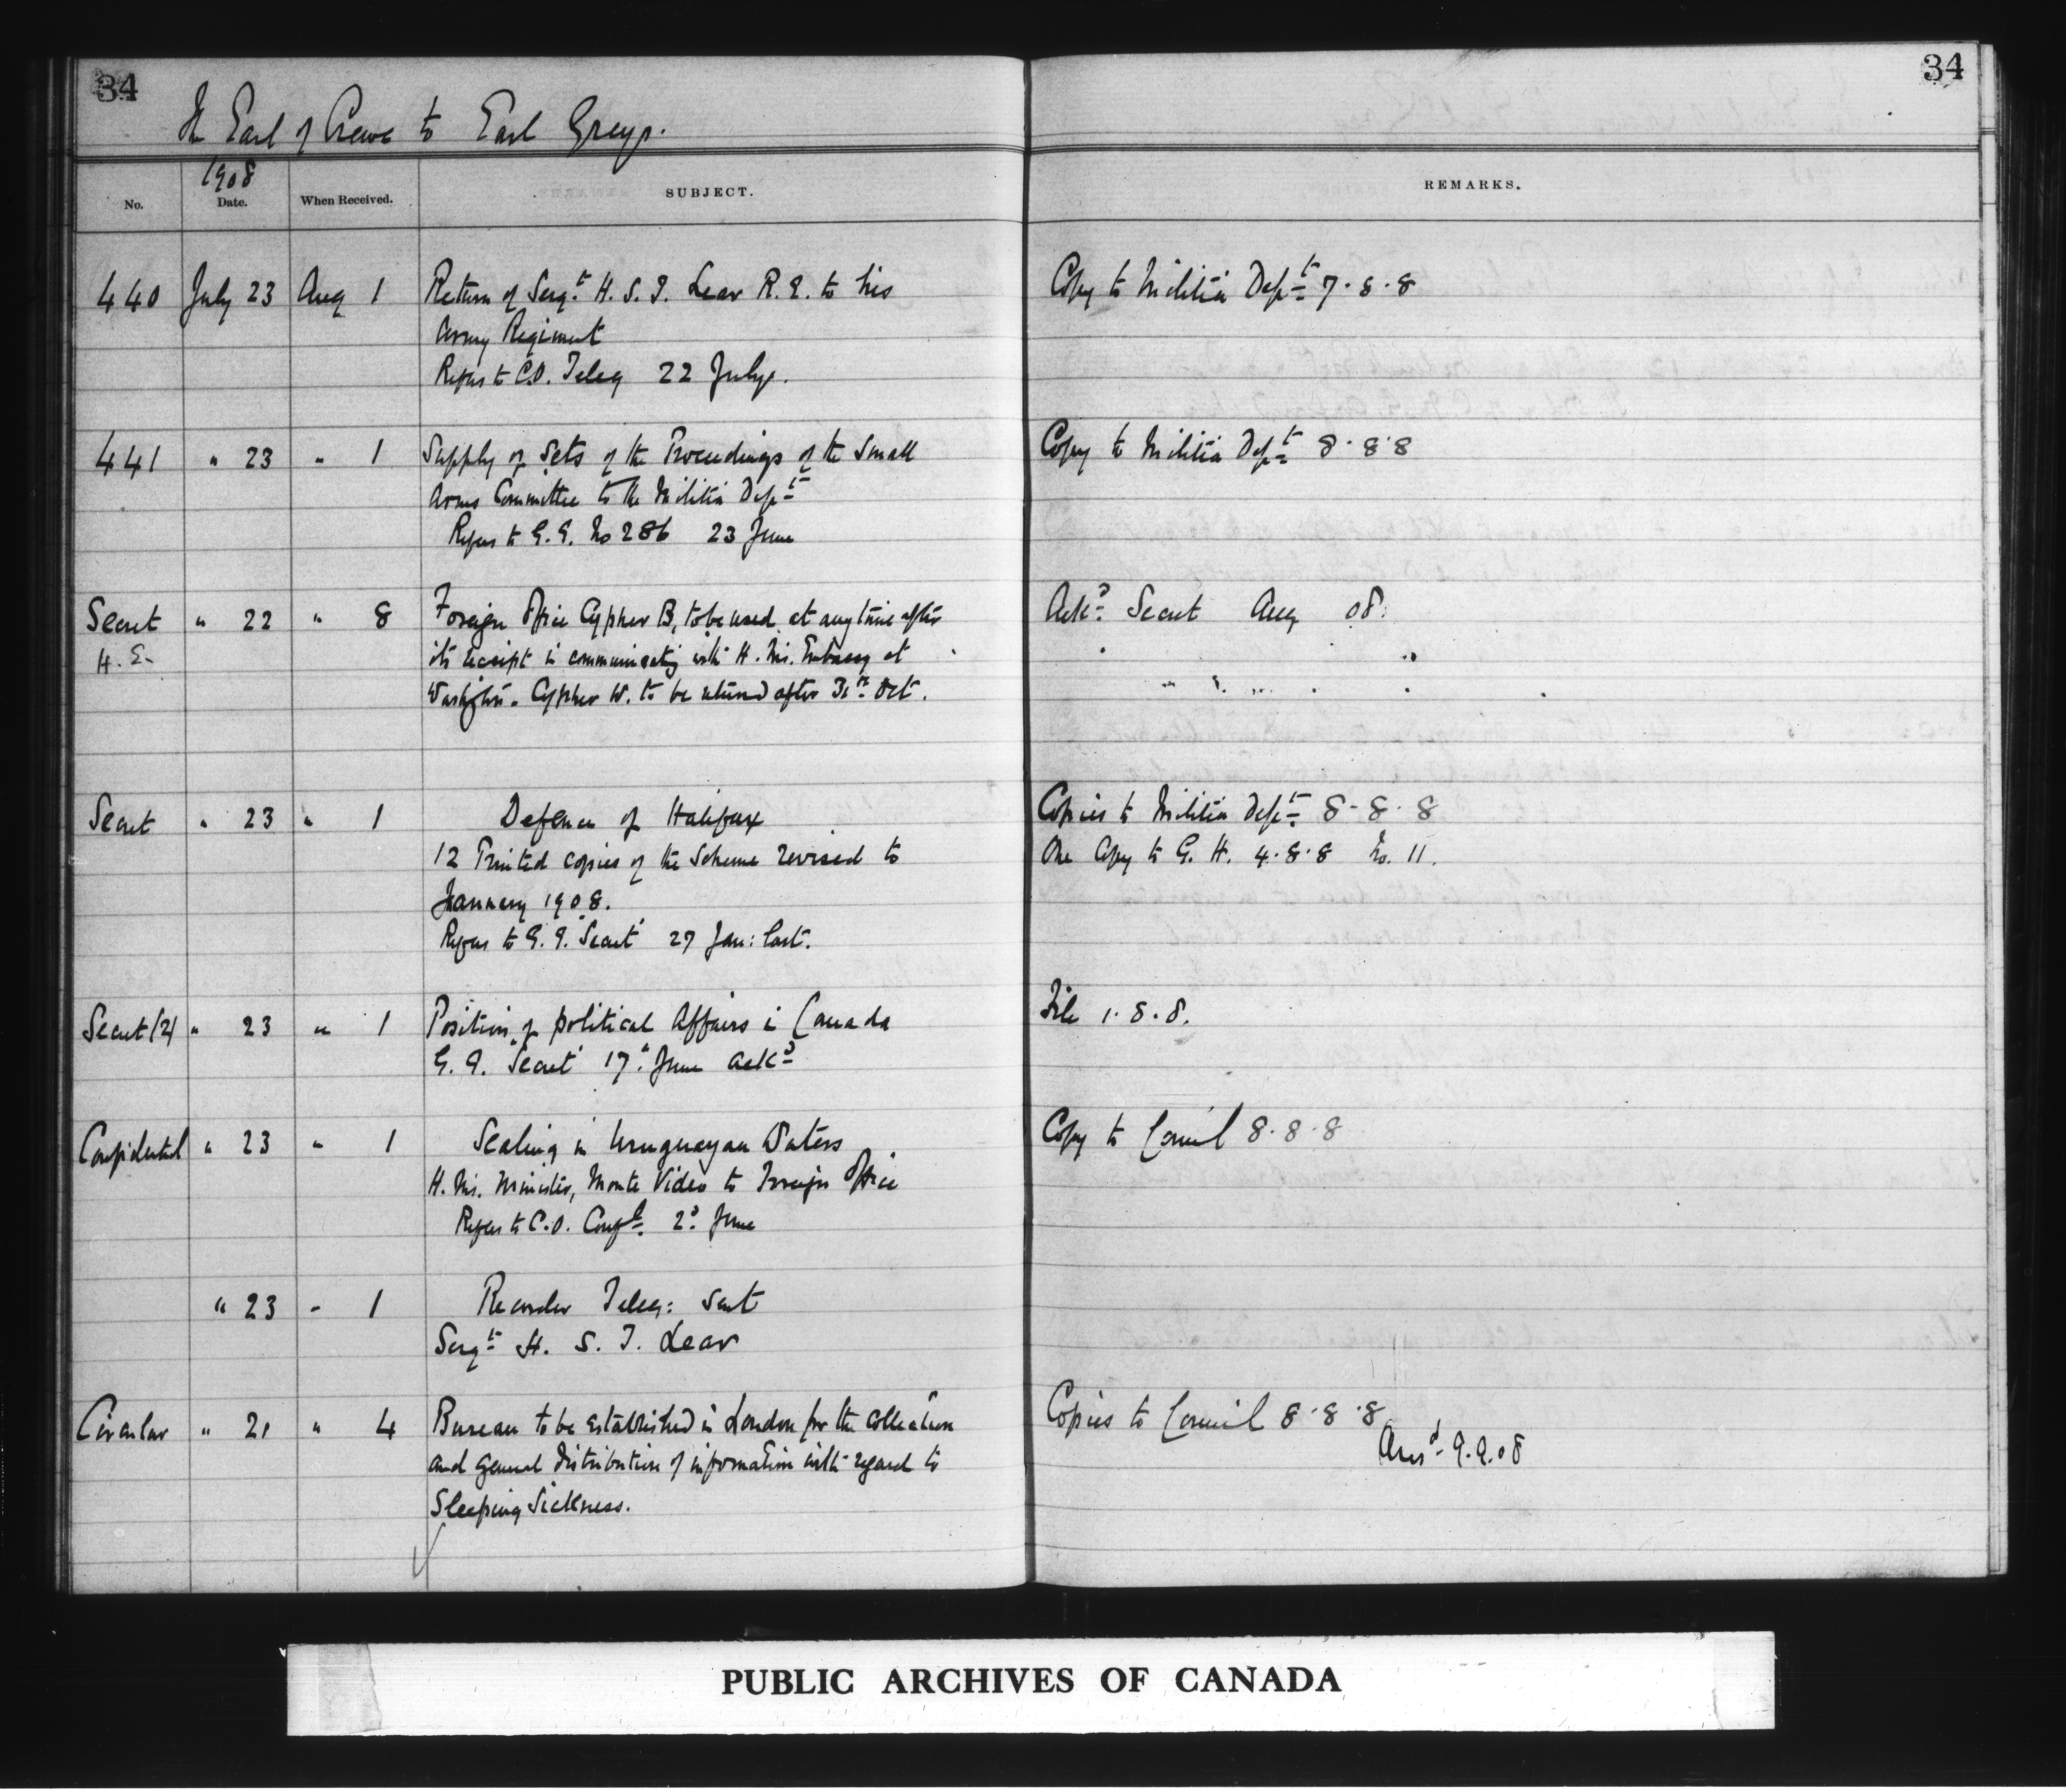 34
34
The Earl of Crewe to Earl Grey.
1908
No. Date. When Received. SUBJECT. REMARKS.
440 July 23 Aug 1 Return of Sergt H. S. T. Lear R.E. to his Copy to Militia Dept 7.8.8
Army Regiment
Refers to C.O. Teleg 22 July.
441 " 23 " 1 Supply of Sets of the Proceedings of the Small Copy to Militia Dept 8.8.8
Arms Committee to the Militia Dept
Refers to G.G. No 286 23 June
Secret " 22 " 8 Foreign Office Cypher B, to be used at any time after Ackd Secret Aug 08.
H. E. its receipt in communicating with H. M. Embassy at
Washgton. Cypher W. to be returnd after 31st Oct.
Secret " 23 " 1 Defence of Halifax Copies to Militia Dept 8-8.8
12 Printed copies of the Scheme revised to One Copy to G. H. 4.8.8 No. 11.
January 1908.
Refers to G.G. 'Secret' 27 Jan: last.
Secret (2) " 23 " 1 Position of political Affairs in Canada File 1.8.8.
G. G. 'Secret' 17 June ackd
Confidential " 23 " 1 Sealing in Uruguayan Waters Copy to Council 8.8.8
H. M. Minister, Monte Video to Foreign Office
Refers to C.O. Confl. 2d June
" 23 " 1 Recorder Teleg: sent
Sergt H. S. T. Lear
Circular " 21 " 4 Bureau to be established in London for the collection Copies to Council 8.8.8
and general distribution of information with regard to Ansd 9.9.08
Sleeping Sickness.
PUBLIC ARCHIVES OF CANADA